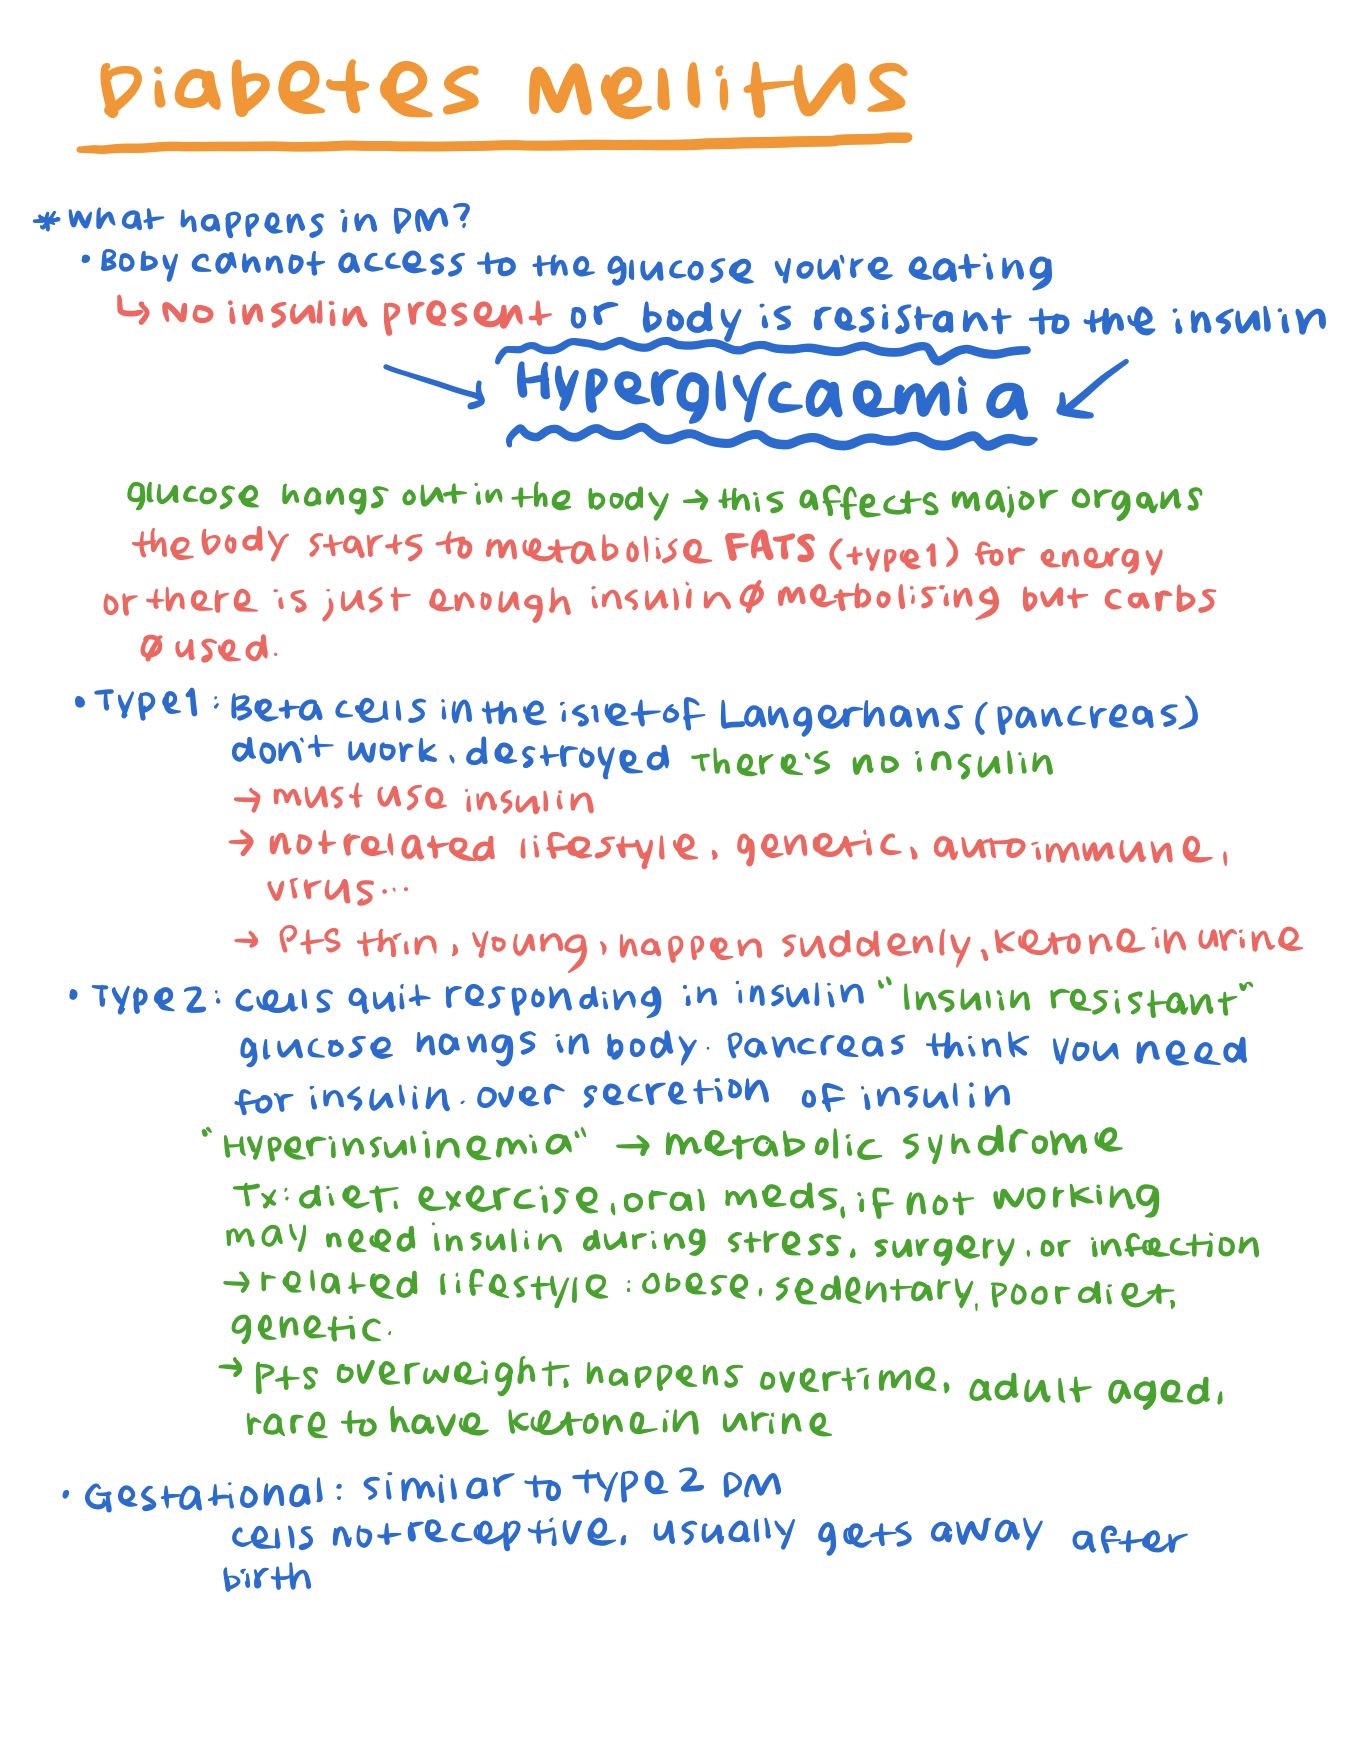 Diabetes Mellitus
* what happens in DM?
• Boby cannot access to the glucose you're eating
↳ No insulin present or body is resistant to the insulin
→ Hyperglycaemia ←
glucose hangs out in the body → this affects major organs
the body starts to metabolise FATS (type1) for energy
or there is just enough insulin Ø metbolising but carbs
Ø used.
• Type1: Beta cells in the islet of Langerhans (pancreas)
don't work. destroyed There's no insulin
→ must use insulin
→ not related lifestyle, genetic, autoimmune,
virus...
→ Pts thin, young, happen suddenly, ketone in urine
• Type2: cells quit responding in insulin "Insulin resistant"
glucose hangs in body. Pancreas think you need
for insulin. over secretion of insulin
"Hyperinsulinemia" → metabolic syndrome
Tx: diet, exercise, oral meds, if not working
may need insulin during stress, surgery, or infection
→ related lifestyle: obese, sedentary, poor diet,
genetic.
→ Pts overweight, happens overtime, adult aged,
rare to have ketone in urine
• Gestational: similar to type 2 DM
cells not receptive, usually gets away after
birth